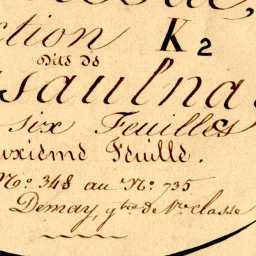 ction K2
Dite de
saulna
six Feuilles
uxième Feuille.
N.º 348 au N.º 735
Demay, g tre de 1re classe